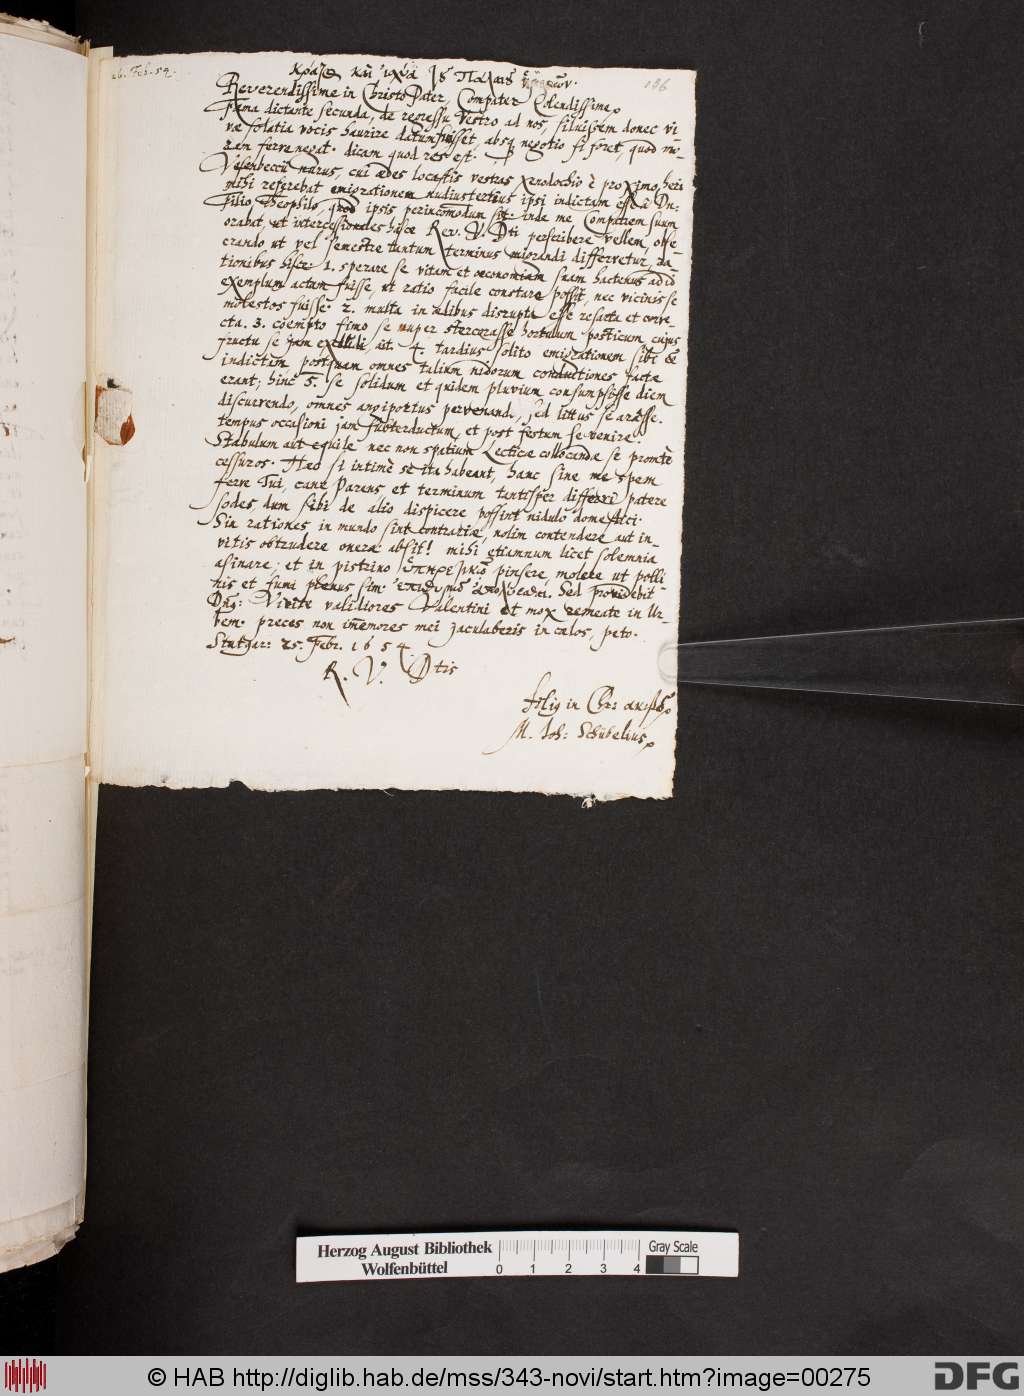 26. Feb. 54.
186
Reverendissime in Christo Pater, Compater Colendissime,
Fama dictante secunda, de regressu Vestro ad nos, siluissem donec vi
væ solatia vocis haurire datum fuisset, absq negotio si foret, quod mo-
ram ferre negat. dicam quod res est.
cui ædes locastis vestras xenodochio è proximo, heri
mihi referebat emigrationem nudiustertius ipsi indictam esse à Dn.
Filio Theophilo, quod ipsis perincomodum sit. inde me Compatrem suum
orabat, ut intercessionales hasce Rev. V. Dti perscribere vellem, obse
crando ut vel semestre tantum terminus migrandi differretur, ra
tionibus hisce. 1. sperare se vitam et œconomiam suam hactenus ad id
exemplum actam fuisse, ut ratio facile constare possit, nec vicinis se
molestos fuisse. 2. multa in ædibus disrupta esse refecta et corre-
cta. 3. coempto fimo se nuper stercorasse hortulum posticum, cujus
fructu se jam ait. 4. tardius solito emigrationem sibi
indictam postquam omnes talium nidorum conductiones factæ
erant; hinc 5. se solidum et quidem pluvium consumpsisse diem
discurrendo, omnes angiportus sed littus se arasse.
tempus occasioni jam subterductum, et post festum se venire.
Stabulum aut equile nec non spatium Lecticæ collocandæ se promtè
cessuros. Hæc si intimè se ita habeant, hanc sine me spem
ferre Tui, cane Parens, et terminum tantisper differri patere
sodes, dum sibi de alio dispicere possint nidulo domestici.
Sin rationes in mundo sint contrariæ, nolim contendere aut in-
vitis obtrudere onera: absit! mihi etiamnum licet solemnia
asinare; et in pistrino pinsere, molere ut polli
nis et fumi plenus sim. Sed providebit
Dng: Vivite validiores Valentini et mox remeate in Ur-
bem. preces non immemores mei jaculaberis in cœlos, peto.
Stutgar: 25. Febr. 1654.
R. V. Dtis
filig in Chr:
M. Joh: Schübelius
Herzog August Bibliothek
Wolfenbüttel
0 1 2 3 4
Gray Scale
© HAB http://diglib.hab.de/mss/343-novi/start.htm?image=00275
DFG